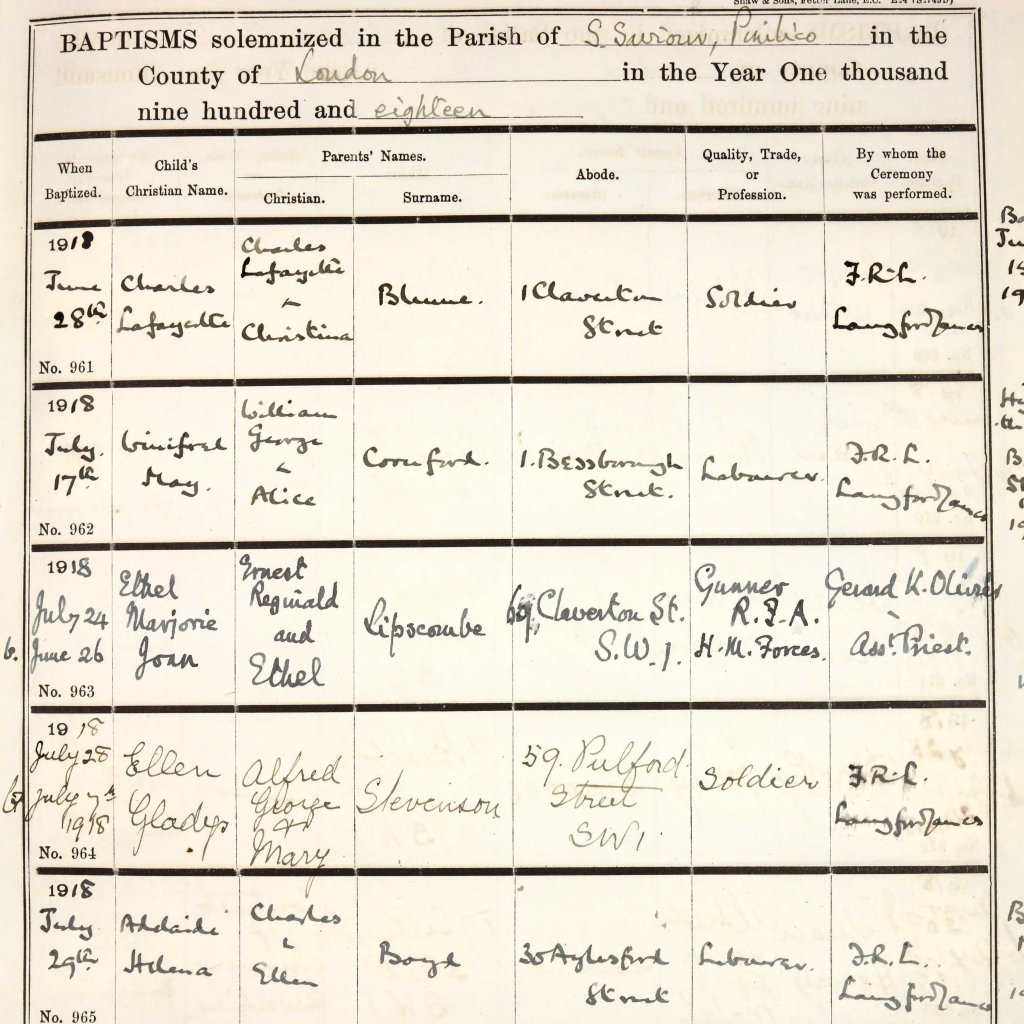 Shaw & Sons, Fetter Lane, E.C.
BAPTISMS solemnized in the Parish of S. Saviour, Pimlico in the
County of London in the Year One thousand
nine hundred and eighteen
When Baptized.
Child's Christian Name.
Parents' Names.
Christian.
Surname.
Abode.
Quality, Trade, or Profession.
By whom the Ceremony was performed.
1918
June
28th
No. 961
Charles
Lafayette
Charles
Lafayette
&
Christina
Blume.
1 Claverton
Street
Soldier
F.R.L.
Langford James
1918
July.
17th
No. 962
Winifred
May.
William
George
&
Alice
Cornford.
1. Bessborough
Street.
Labourer.
F.R.L.
Langford James
1918
July 24
b. June 26
No. 963
Ethel
Marjorie
Joan
Ernest
Reginald
and
Ethel
Lipscombe
69, Claverton St.
S.W.1.
Gunner
R.F.A.
H.M. Forces.
Gerard K. Olivier
Asst. Priest.
1918
July 28
July 7th
1918
No. 964
Ellen
Gladys
Alfred
George
&
Mary
Stevenson
59. Pulford
Street
SW1
Soldier
F.R.L.
Langford James
1918
July
29th
No. 965
Adelaide
Helena
Charles
&
Ellen
Boyd
30 Aylesford
Street
Labourer.
F.R.L.
Langford James